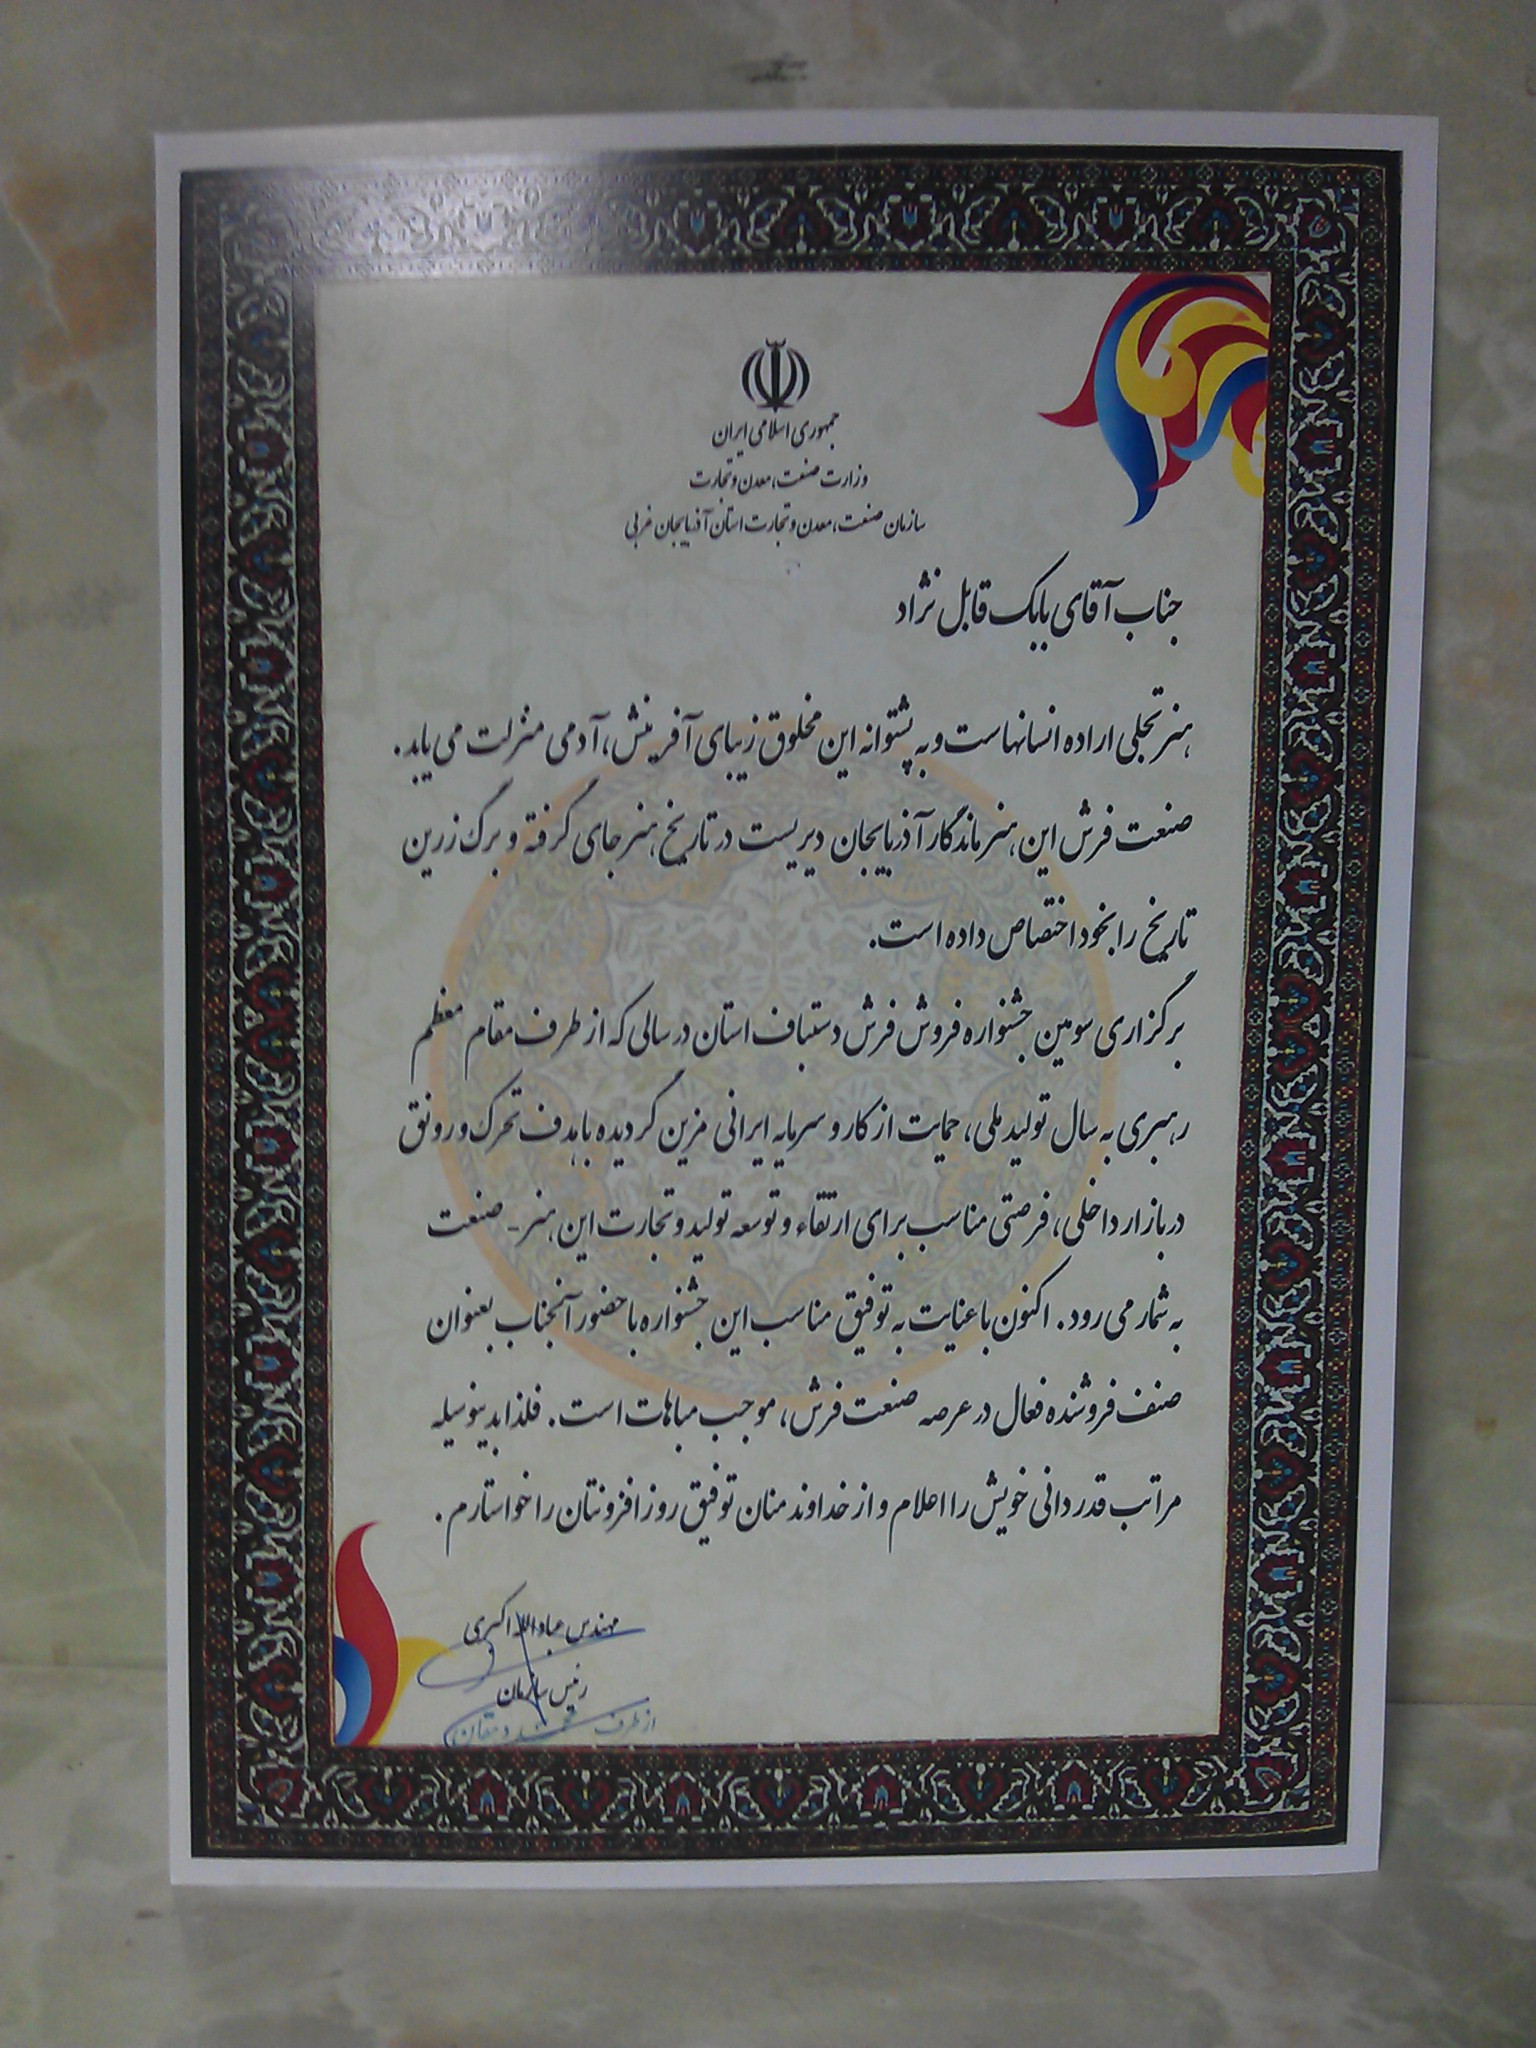 جمهوری اسلامی ایران
وزارت صنعت، معدن و تجارت
سازمان صنعت، معدن و تجارت استان آذربایجان غربی
جناب آقای بابک قابل نژاد
هنر تجلی اراده انسانهاست و به پشتوانه این مخلوق زیبای آفرینش، آدمی منزلت می یابد.
صنعت فرش این هنر ماندگار آذربایجان دیریست در تاریخ هنر جای گرفته و برگ زرین
تاریخ را بخود اختصاص داده است.
برگزاری سومین جشنواره فروش فرش دستباف استان در سالی که از طرف مقام معظم
رهبری به سال تولید ملی، حمایت از کار و سرمایه ایرانی مزین گردیده با هدف تحرک و رونق
در بازار داخلی، فرصتی مناسب برای ارتقاء و توسعه تولید و تجارت این هنر - صنعت
به شمار می رود. اکنون با عنایت به توفیق مناسب این جشنواره با حضور آنجناب بعنوان
صنف فروشنده فعال در عرصه صنعت فرش، موجب مباهات است. فلذا بدینوسیله
مراتب قدردانی خویش را اعلام و از خداوند منان توفیق روز افزونتان را خواستارم.
مهندس عباداله اکبری
رئیس سازمان
از طرف